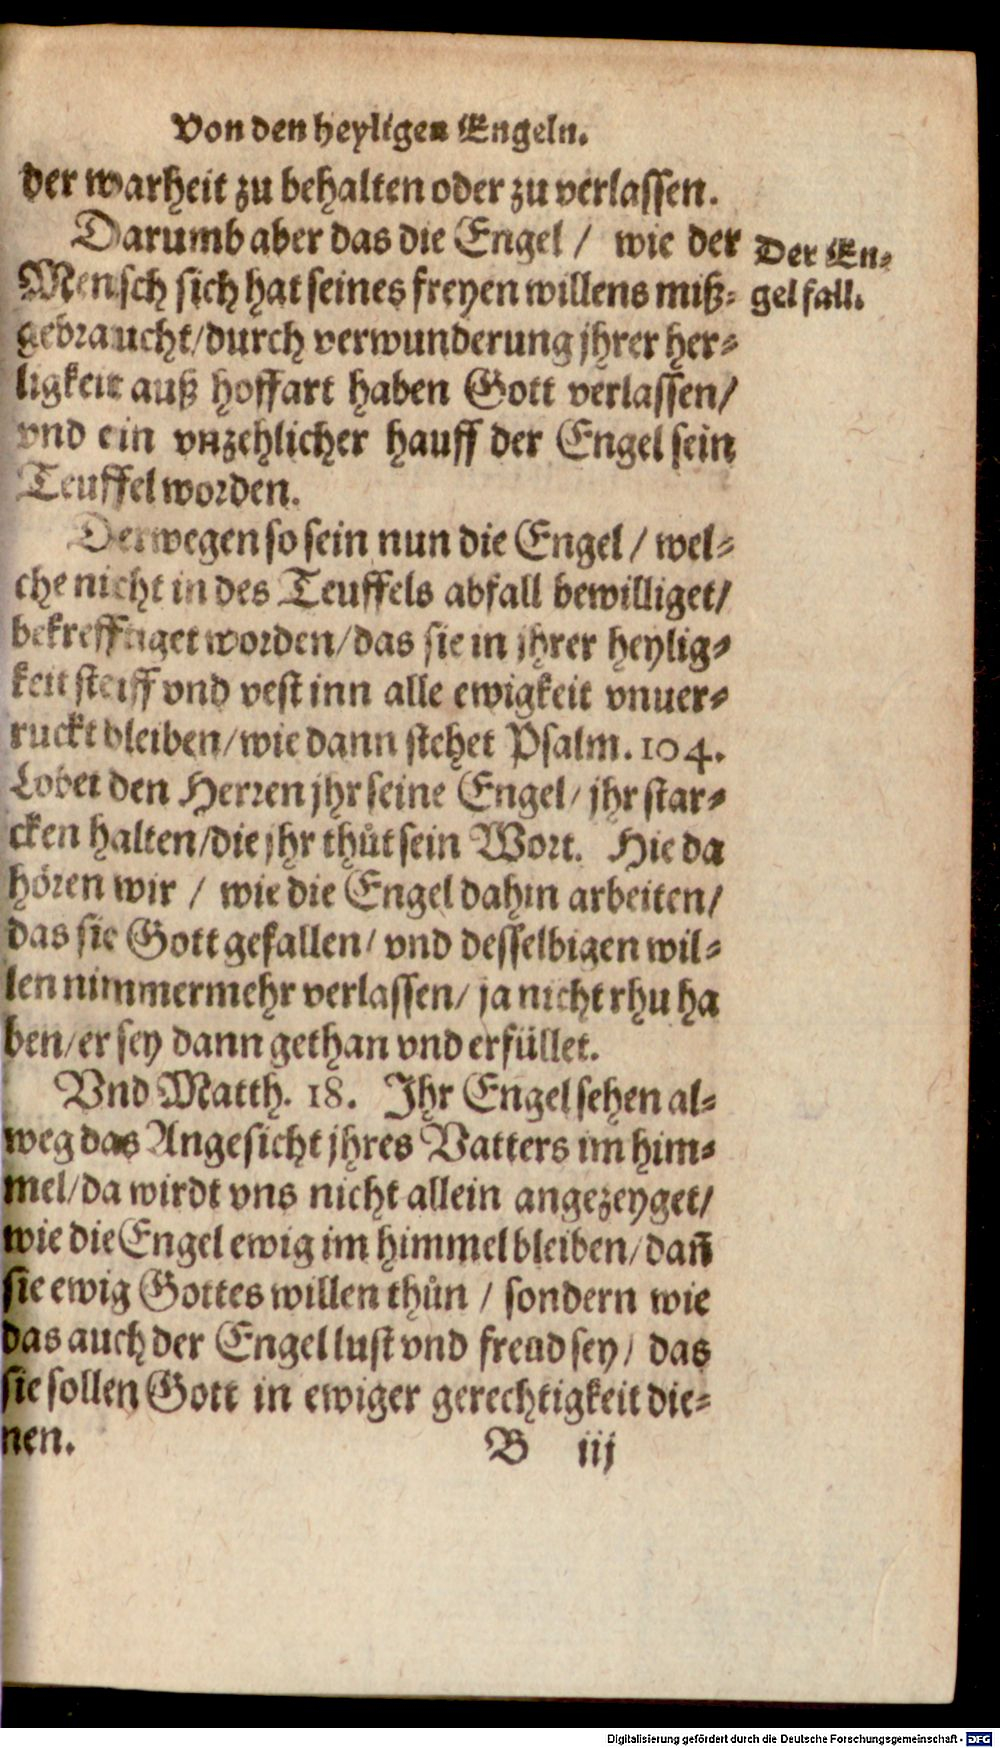 Von den heyligen Engeln.
der warheit zu behalten oder zu verlassen.
Darumb aber das die Engel / wie der
Mensch sich hat seines freyen willens miß-
gebraucht/durch verwunderung jhrer her-
ligkeit auß hoffart haben Gott verlassen/
vnd ein vnzehlicher hauff der Engel sein
Teuffel worden.
Der En-
gel fall.
Derwegen so sein nun die Engel / wel-
che nicht in des Teuffels abfall bewilliget/
bekrefftiget worden/das sie in jhrer heylig-
keit steiff vnd vest inn alle ewigkeit vnuer-
ruckt bleiben/wie dann stehet Psalm. 104.
Lobet den Herren jhr seine Engel/ jhr star-
cken halten/die jhr thůt sein Wort. Hie da
hören wir / wie die Engel dahin arbeiten/
das sie Gott gefallen/ vnd desselbigen wil-
len nimmermehr verlassen/ ja nicht rhu ha
ben/er sey dann gethan vnd erfüllet.
Vnd Matth. 18. Jhr Engel sehen al-
weg das Angesicht jhres Vatters im him-
mel/da wirdt vns nicht allein angezeyget/
wie die Engel ewig im himmel bleiben/dañ
sie ewig Gottes willen thůn / sondern wie
das auch der Engel lust vnd freud sey/ das
sie sollen Gott in ewiger gerechtigkeit die-
nen.
B iij
Digitalisierung gefördert durch die Deutsche Forschungsgemeinschaft - DFG